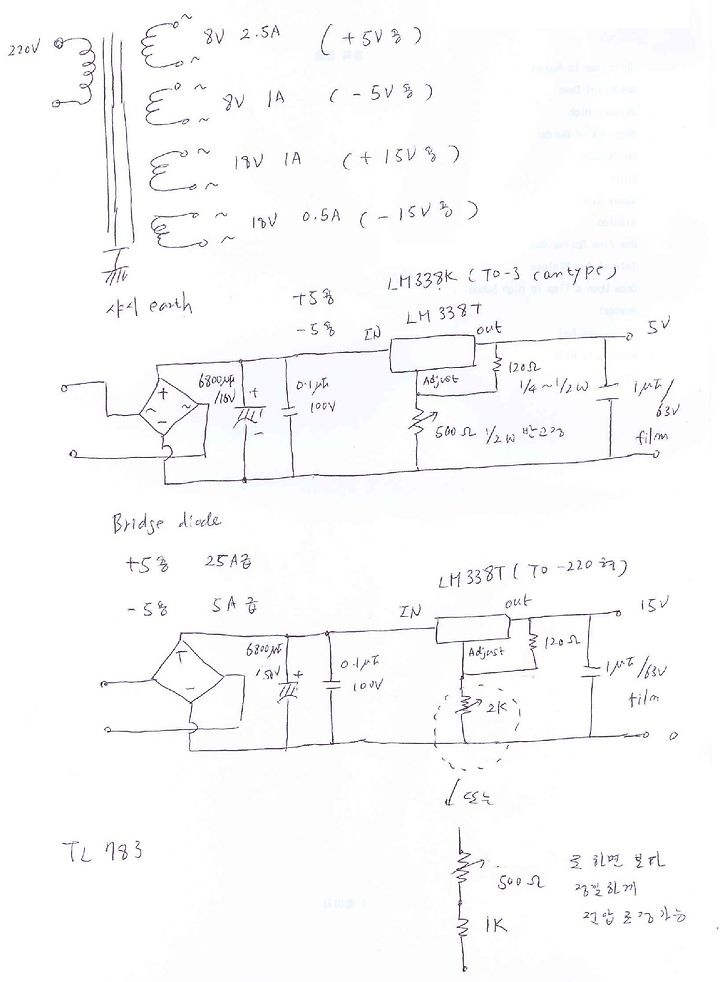 220V
8V 2.5A (+5V용)
8V 1A (-5V용)
18V 1A (+15V용)
18V 0.5A (-15V용)
샤시 earth
+5용
-5용
LM338K (TO-3 can type)
LM 338T
IN
out
5V
Adjust
6800µF
/16V
+
-
0.1µF
100V
120Ω
1/4 ~ 1/2 W
500Ω 1/2W 반고정
1µF/
63V
film
Bridge diode
+5용 25A급
-5용 5A급
LM338T (TO-220형)
IN
out
15V
Adjust
6800µF
+
0.1µF
100V
120Ω
2K
1µF/63V
film
0
또는
TL 783
500Ω
1K
로 하면 보다
정밀하게
전압 조정가능